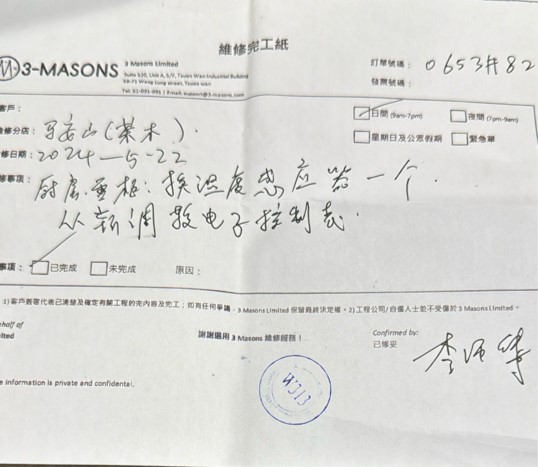 維修完工紙
3-MASONS
3 Masons Limited
Suite 530, Unit A, 5/F, Tsuen Wan Industrial Building
68-71 Wang Lung street, Tsuen wan
訂單號碼： 0653#82
發票號碼：
客戶：
維修分店： 马安山(荣木).
維修日期： 2024-5-22
日間 (9am-7pm)
夜間 (7pm-9am)
星期日及公眾假期
緊急單
修事項： 厨房雪柜：换温度感应器一个.
从新调校电子控制表.
事項：
已完成
未完成
原因：
1)客戶簽署代表已清楚及確定有關工程的完內容及完工；如有任何爭議，3 Masons Limited 保留最終決定權。2)工程公司/自僱人士並不受僱於 3 Masons Limited。
half of
ited
謝謝選用 3 Masons 維修服務！
Confirmed by:
已修妥
e information is private and confidential.
W313